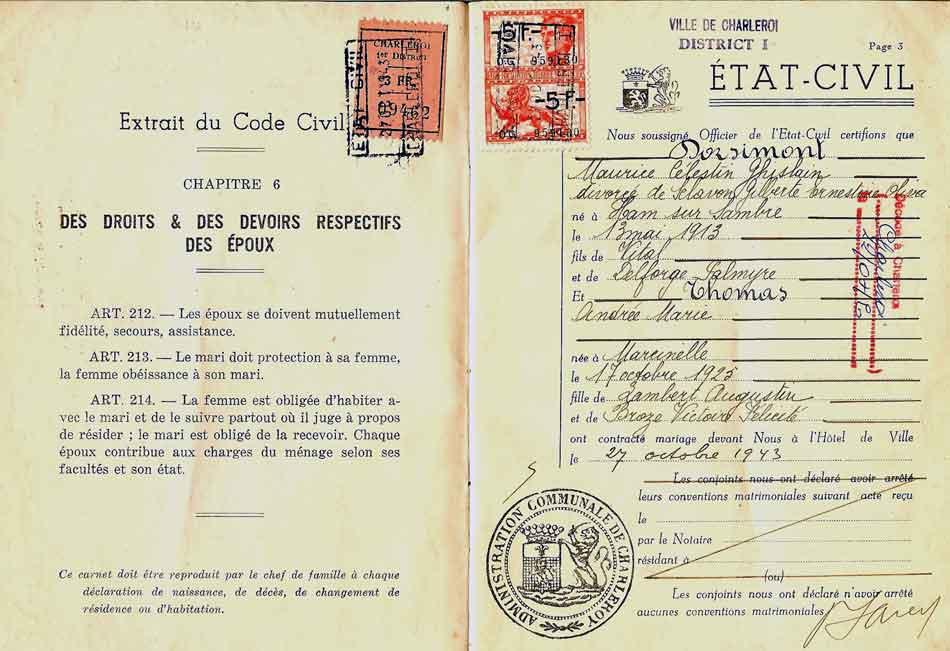 Extrait du Code Civil
CHAPITRE 6
DES DROITS & DES DEVOIRS RESPECTIFS
DES ÉPOUX
ART. 212. — Les époux se doivent mutuellement
fidélité, secours, assistance.
ART. 213. — Le mari doit protection à sa femme,
la femme obéissance à son mari.
ART. 214. — La femme est obligée d'habiter a-
vec le mari et de le suivre partout où il juge à propos
de résider ; le mari est obligé de la recevoir. Chaque
époux contribue aux charges du ménage selon ses
facultés et son état.
Ce carnet doit être reproduit par le chef de famille à chaque
déclaration de naissance, de décès, de changement de
résidence ou d'habitation.
CHARLEROI
1er DISTRICT
3 FR
09462
ETAT CIVIL
-5F-
-5F-
VILLE DE CHARLEROI
DISTRICT I
Page 3
ÉTAT-CIVIL
Nous soussigné Officier de l'Etat-Civil certifions que
Dorsimont
Maurice Célestin Ghislain
divorcé de Sclavon Gilberte Ernestine Oliva
né à Ham sur Sambre
le 13 mai 1913
fils de Vital
et de Delforge Palmyre
Et Thomas
Andrée Marie
née à Marcinelle
le 17 octobre 1925
fille de Lambert Augustin
et de Broze Victoire Félicité
ont contracté mariage devant Nous à l'Hôtel de Ville
le 27 octobre 1943
Les conjoints nous ont déclaré avoir arrêté
leurs conventions matrimoniales suivant acte reçu
le
par le Notaire
résidant à
(ou)
Les conjoints nous ont déclaré n'avoir arrêté
aucunes conventions matrimoniales
Décédé à
ADMINISTRATION COMMUNALE DE CHARLEROY